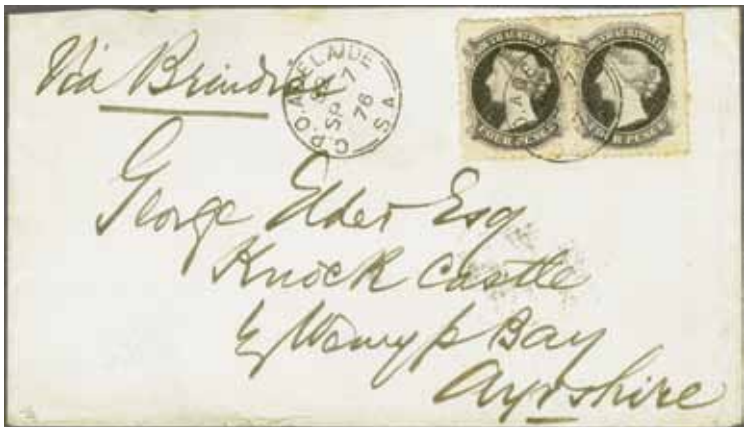 Via Brindisi
G.P.O. ADELAIDE S.A
SP 7
76
SOUTH AUSTRALIA SOUTH AUSTRALIA
FOUR PENCE FOUR PENCE
George Elder Esq
Knock Castle
by Wemyss Bay
Ayrshire